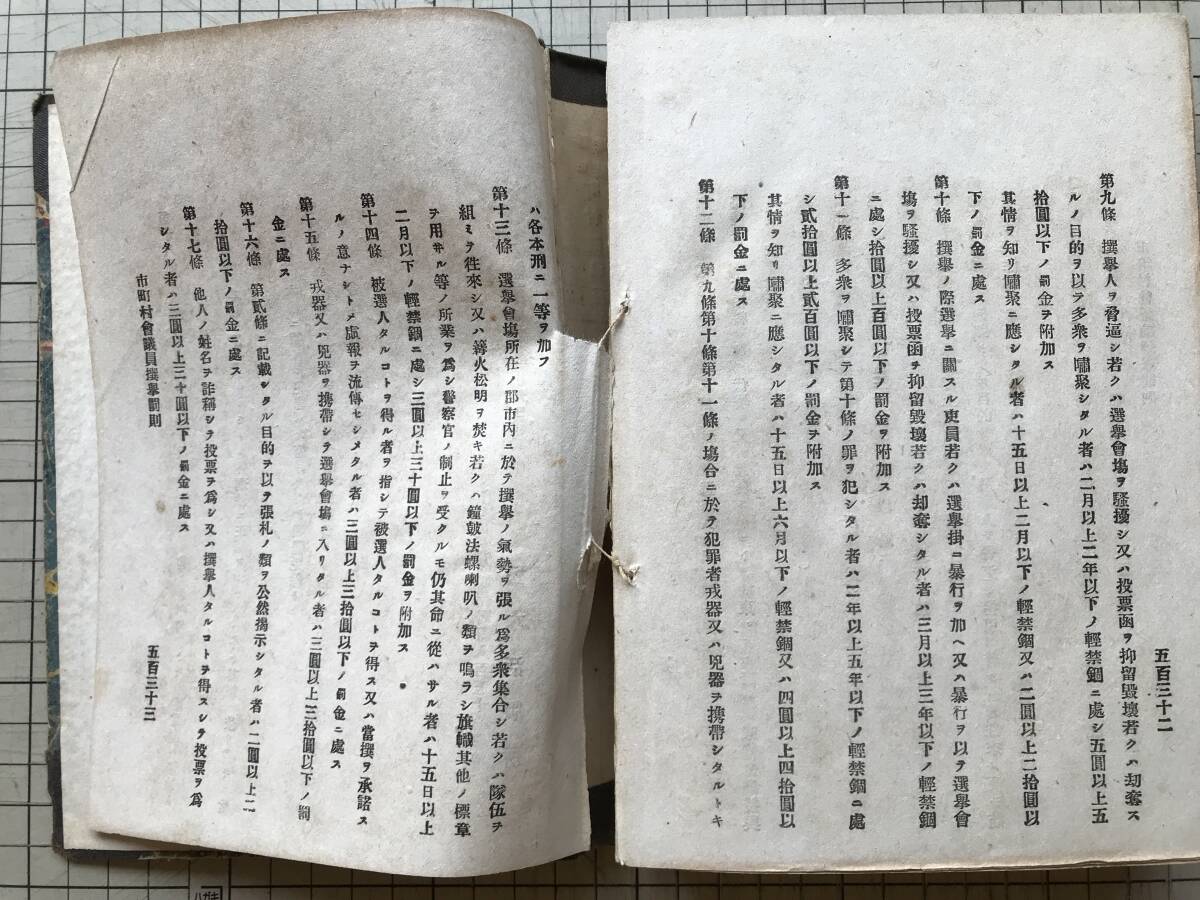 五百三十二
第九條 撰擧人ヲ脅逼シ若クハ選擧會塲ヲ騷擾シ又ハ投票凾ヲ抑留毀壞若クハ却奪ス
ルノ目的ヲ以テ多衆ヲ嘯聚シタル者ハ二月以上二年以下ノ輕禁錮ニ處シ五圓以上五
拾圓以下ノ罰金ヲ附加ス
其情ヲ知リ嘯聚ニ應シタル者ハ十五日以上二月以下ノ輕禁錮又ハ二圓以上二拾圓以
下ノ罰金ニ處ス
第十條 撰擧ノ際選擧ニ關スル吏員若クハ選擧掛ニ暴行ヲ加ヘ又ハ暴行ヲ以テ選擧會
塲ヲ騷擾シ又ハ投票凾チ抑留毀壞若クハ却奪シタル者ハ三月以上三年以下ノ輕禁錮
ニ處シ拾圓以上百圓以下ノ罰金ヲ附加ス
第十一條 多衆ヲ嘯聚シテ第十條ノ罪ヲ犯シタル者ハ二年以上五年以下ノ輕禁錮ニ處
シ貳拾圓以上貳百圓以下ノ罰金ヲ附加ス
其情ヲ知リ嘯聚ニ應シタル者ハ十五日以上六月以下ノ輕禁錮又ハ四圓以上四拾圓以
下ノ罰金ニ處ス
第十二條 第九條第十條第十一條ノ塲合ニ於テ犯罪者戎器又ハ兇器ヲ携帶シタルトキ
ハ各本刑ニ一等ヲ加フ
第十三條 選擧會塲所在ノ郡市內ニ於テ撰擧ノ氣勢ヲ張ル爲多衆集合シ若クハ隊伍ヲ
組ミテ徃來シ又ハ篝火松明ヲ焚キ若クハ鐘皷法螺喇叭ノ類ヲ鳴ラシ旗幟其他ノ標章
ヲ用井ル等ノ所業ヲ爲シ警察官ノ制止ヲ受クルモ仍其命ニ從ハサル者ハ十五日以上
二月以下ノ輕禁錮ニ處シ三圓以上三十圓以下ノ罰金ヲ附加ス
第十四條 被選人タルコトヲ得ル者ヲ指シテ被選人タルコトヲ得ス又ハ當撰ヲ承諾ス
ルノ意ナシトノ虛報ヲ流傳セシメタル者ハ三圓以上三拾圓以下ノ罰金ニ處ス
第十五條 戎器又ハ兇器ヲ携帶シテ選擧會塲ニ入リタル者ハ三圓以上三拾圓以下ノ罰
金ニ處ス
第十六條 第貳條ニ記載シタル目的ヲ以テ張札ノ類ヲ公然揭示シタル者ハ二圓以上二
拾圓以下ノ罰金ニ處ス
第十七條 他人ノ姓名ヲ詐稱シテ投票ヲ爲シ又ハ撰擧人タルコトヲ得スシテ投票ヲ爲
シタル者ハ三圓以上三十圓以下ノ罰金ニ處ス
市町村會議員撰擧罰則
五百三十三